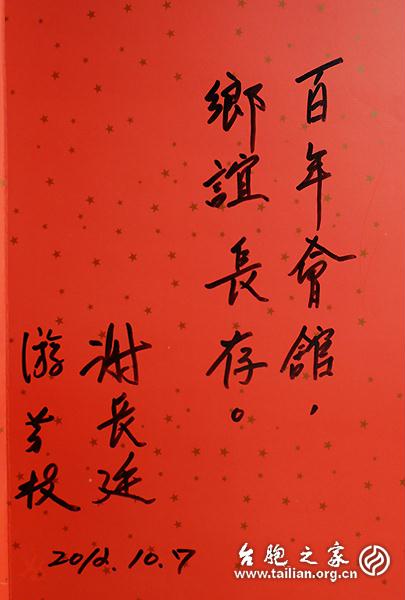 百年會館，
鄉誼長存。
謝長廷
游芳枝
2012.10.7
台胞之家
www.tailian.org.cn